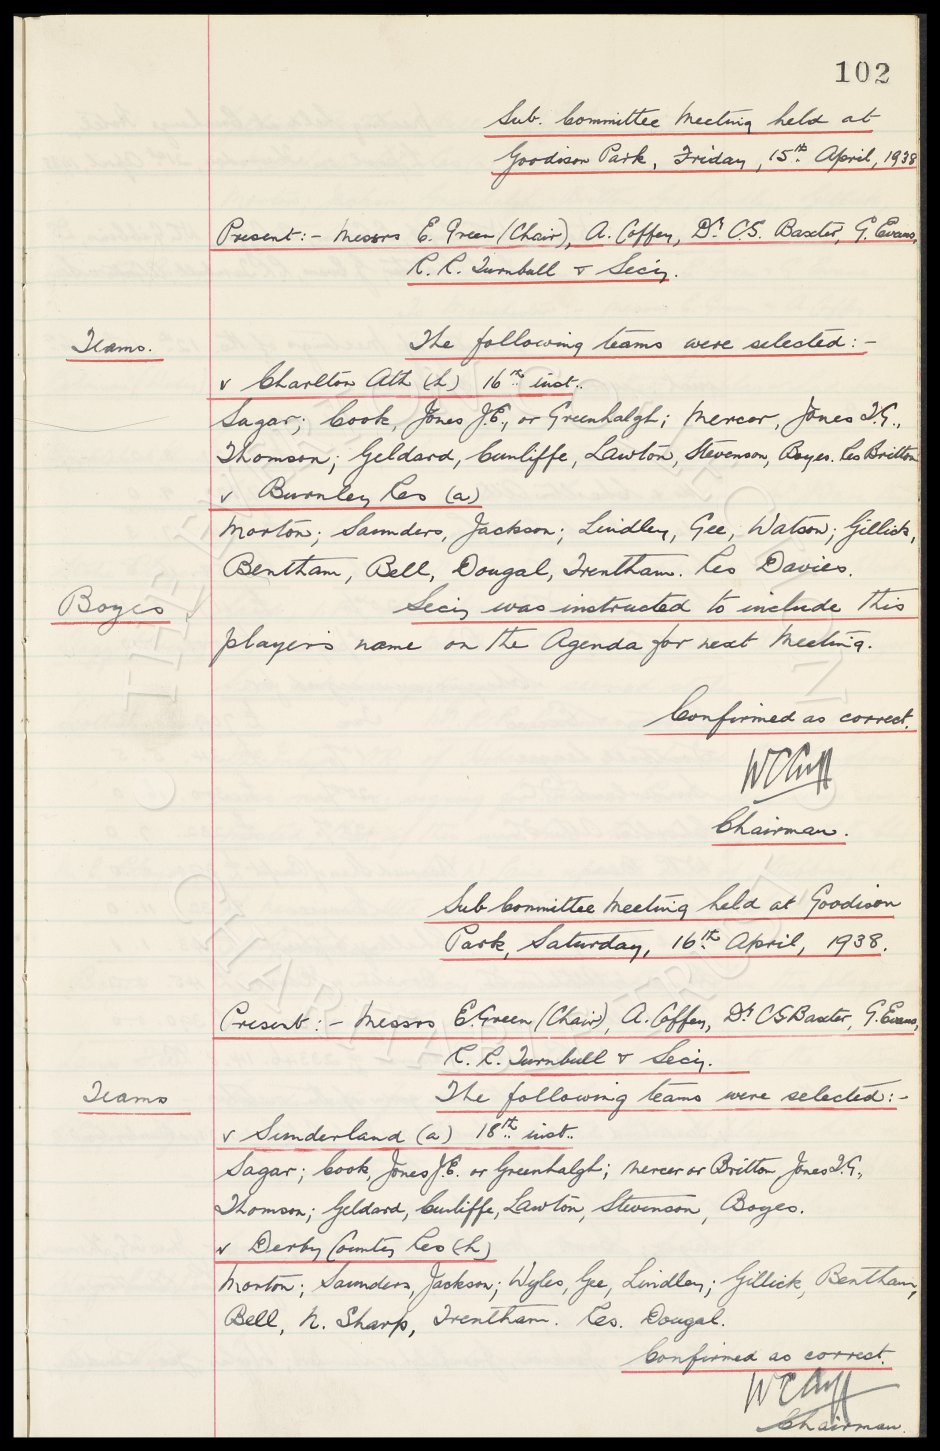 102
Sub. Committee Meeting held at
Goodison Park, Friday, 15th April, 1938
Present:- Messrs E. Green (Chair), A. Coffey, Dr C.S. Baxter, G. Evans,
R. R. Turnbull & Secy.
Teams. The following teams were selected:-
v Charlton Ath (h) 16th inst..
Sagar; Cook, Jones J.E., or Greenhalgh; Mercer, Jones T.G.,
Thomson; Geldard, Cunliffe, Lawton, Stevenson, Boyes. Res Britton
v Burnley Res (a)
Morton; Saunders, Jackson; Lindley, Gee, Watson; Gillick,
Bentham, Bell, Dougal, Trentham. Res Davies.
Boyes Secy was instructed to include this
player's name on the Agenda for next Meeting.
Confirmed as correct.
WCCuff
Chairman.
Sub Committee Meeting held at Goodison
Park, Saturday, 16th April, 1938.
Present:- Messrs E. Green (Chair), A. Coffey, Dr C S Baxter, G. Evans,
R. R. Turnbull & Secy.
Teams The following teams were selected:-
v Sunderland (a) 18th inst..
Sagar; Cook, Jones J.E. or Greenhalgh; Mercer or Britton Jones T.G.,
Thomson; Geldard, Cunliffe, Lawton, Stevenson, Boyes.
v Derby County Res (h)
Morton; Saunders, Jackson; Wyles, Gee, Lindley; Gillick, Bentham,
Bell, N. Sharp, Trentham. Res. Dougal.
Confirmed as correct.
WCCuff
Chairman.